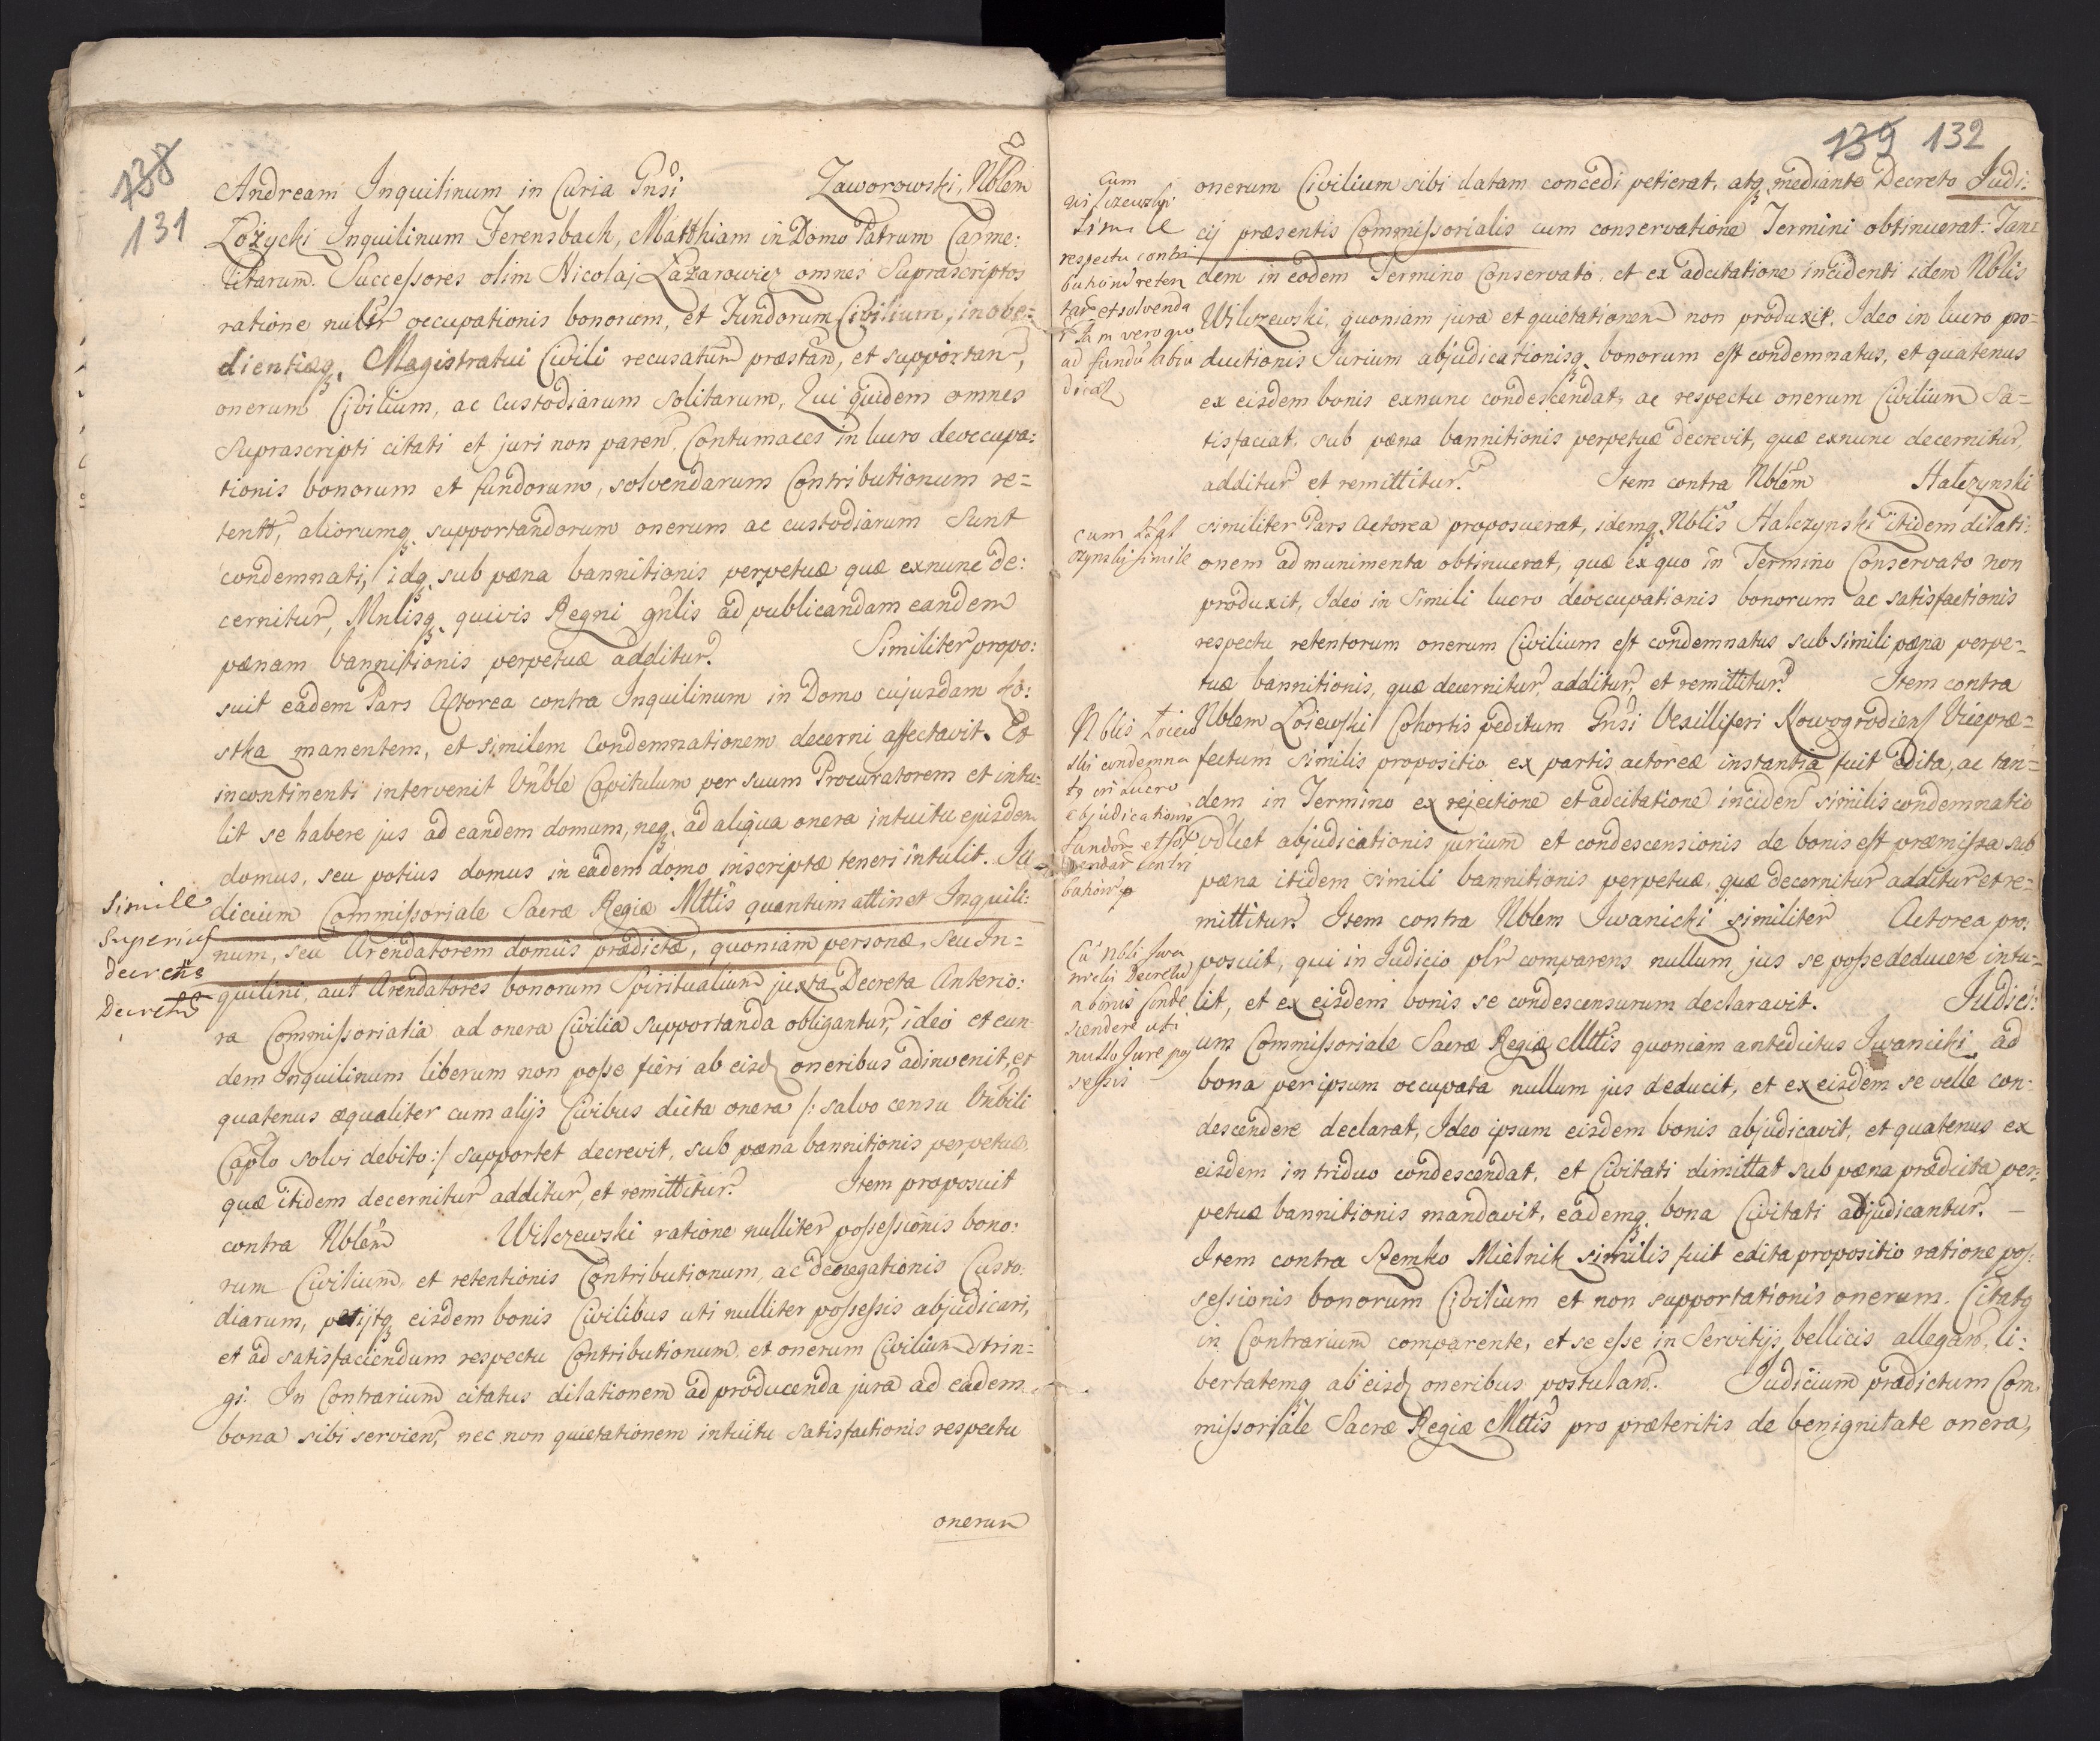 138
131
Andream Inquilinum in Curia Gnsi Zaworowski, Nblem
Łozycki Inquilinum Ferensbach, Matthiam in Domo Patrum Carme:
litarum. Successores olim Nicolaj Łazarowicz omnes Suprascriptos
ratione nullr occupationis bonorum, et Fundorum Civilium, inobe:
dientiæq, Magistratui Civili recusatum præstan, et supportan,
onerum Civilium, ac Custodiarum Solitarum, Qui quidem omnes
Suprascripti citati et juri non paren. Contumaces in lucro deoccupa:
tionis bonorum et fundorum, solvendarum Contributionum re=
tentt, aliorumq supportandorum onerum ac custodiarum Sunt
condemnati, idq sub pæna bannitionis perpetuæ quæ exnunc de:
cernitur, Mnlisq quivis Regni gnlis ad publicandam eandem
pænam bannitionis perpetuæ additur. Similiter propo:
suit eadem Pars Actorea contra Inquilinum in Domo cujusdam Ło:
stka manentem, et similem Condemnationem decerni affectavit. Et
incontinenti intervenit Vnble Capitulum per suum Procuratorem et intu:
lit se habere jus ad eandem domum, neq ad aliqua onera intuitu ejusdem
domus, seu potius domus in eadem domo inscriptæ teneri intulit. Ju-
dicium Commissoriale Sacræ Regiæ Mttis quantum attinet Inquili:
num, seu Arendatorem domûs prædictæ, quoniam personæ, seu In=
quilini, aut Arendatores bonorum Spiritualium juxta Decreta Anterio:
ra Commissorialia ad onera Civilia supportanda obligantur, ideo et eun
dem Inquilinum liberum non posse fieri ab eisd oneribus adinvenit, et
quatenus æqualiter cum alijs Civibus dicta onera /: salvo censu Vnbili
Caplo solvi debito :/ supportet decrevit, sub pæna bannitionis perpetuæ,
quæ itidem decernitur additur, et remittitur. Item proposuit
contra Nblem Wilczewski ratione nulliter possessionis bono:
rum Civilium, et retentionis Contributionum, ac denegationis Custo:
diarum, petijtq eisdem bonis Civilibus uti nulliter possessis abjudicari,
et ad satisfaciendum respectu Contributionum, et onerum Civilium strin=
gi: In Contrarium citatus dilationem ad producenda jura ad eadem
bona sibi servien, nec non quietationem intuitu satisfactionis respectu
onerum
Simile
superius
decretis
Decretu
139 132
onerum Civilium sibi datam concedi petierat, atq mediante Decreto Judi:
cij præsentis Commissorialis cum conservatione Termini obtinuerat. Tan=
dem in eodem Termino Conservato, et ex adcitatione incidenti idem Nblis
Wilczewski, quoniam jura et quietationem non produxit. Ideo in lucro pro=
ductionis Jurium abjudicationisq bonorum est condemnatus, et quatenus
ex eisdem bonis exnunc condescendat, ac respectu onerum Civilium Sa=
tisfaciat, sub pæna bannitionis perpetuæ decrevit, quæ exnunc decernitur,
additur et remittitur. Item contra Nblem Halczynski
similiter Pars Actorea proposuerat, idemq Nblis Halczynski itidem dilati:
onem ad munimenta obtinuerat, quæ ex quo in Termino Conservato non
produxit, Ideo in Simili lucro deoccupationis bonorum ac satisfactionis
respectu retentorum onerum Civilium est condemnatus sub simili pæna perpe=
tuæ bannitionis, quæ decernitur, additur, et remittitur. Item contra
Nblem Łoiewski Cohortis peditum Gnsi Vexilliferi Nowogrodien Vicepræ=
fectum similis propositio ex partis actoreæ instantia fuit edita, ac tan=
dem in Termino ex rejectione et adcitatione inciden similis condemnatio
vdlicet abjudicationis jurium et condescensionis de bonis est præmissa sub
pæna itidem simili bannitionis perpetuæ, quæ decernitur additur et re=
mittitur. Item contra Nblem Iwanicki similiter Actorea pro:
posuit, qui in Judicio plr comparens nullum jus se posse deducere intu=
lit, et ex eisdem bonis se condescensurum declaravit. Judici:
um Commissoriale Sacræ Regiæ Mttis quoniam antedictus Iwanicki ad
bona per ipsum occupata nullum jus deducit, et ex eisdem se velle con=
descendere declarat, Ideo ipsum eisdem bonis abjudicavit, et quatenus ex
eisdem in triduo condescendat, et Civitati dimittat sub pæna prædicta per=
petuæ bannitionis mandavit, eademq bona Civitati adjudicantur. —
Item contra Stemko Mielnik similis fuit edita propositio ratione pos:
sessionis bonorum Civilium et non supportationis onerum. Citatq
in Contrarium comparente, et se esse in Servitijs bellicis allegan, li:
bertatemq ab eisd oneribus postulan. Judicium prædictum Com:
missoriale Sacræ Regiæ Mttis pro præteritis de benignitate onera,
Cum
Wilczewski
Simile
respectu contri
butionu reten
tar et solvenda
r Tam vero quo
ad fundu abiu
dicat
cum Hal
czynski simile
Nblis Łoiew
ski condemna
tq in Lucro
abjudicationis
fundor et sol
vendar contri
butionu
Cu Nbli Iwa
nicki Decretu
a bonis conde
scendere uti
nullo Jure pos
sessis